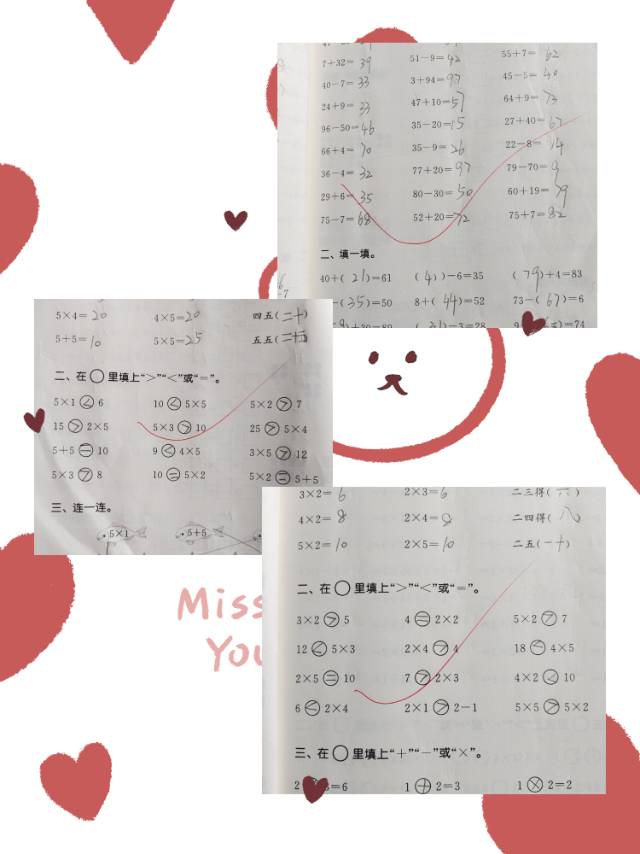 ?+32=39 51-9=42 55+7=62
40-7=33 3+94=97 45-5=40
24+9=33 47+10=57 64+9=73
96-50=46 35-20=15 27+40=67
66+4=70 35-9=26 22-8=14
36-4=32 77+20=97 79-70=9
29+6=35 80-30=50 60+19=79
75-7=68 52+20=72 75+7=82
二、填一填。
40+(21)=61 (4 )-6=35 (79)+4=83
-(35)=50 8+(44)=52 73-(67)=6
)+20=80 (31)-3=28 )=74
5×4=20 4×5=20 四五(二十)
5+5=10 5×5=25 五五(二十五)
二、在○里填上“>”“<”或“=”。
5×1<6 10<5×5 5×2>7
15>2×5 5×3>10 25>5×4
5+5=10 9<4×5 3×5>12
5×3>8 10=5×2 5×2=5+5
三、连一连。
5×1 5+5
3×2=6 2×3=6 二三得(六)
4×2=8 2×4=8 二四得(八)
5×2=10 2×5=10 二五(一十)
二、在○里填上“>”“<”或“=”。
3×2>5 4=2×2 5×2>7
12<5×3 2×4>4 18<4×5
2×5=10 7>2×3 4×2<10
6<2×4 2×1>2-1 5×5>5×2
三、在○里填上“+”“-”或“×”。
2 3=6 1+2=3 1×2=2
Miss
You